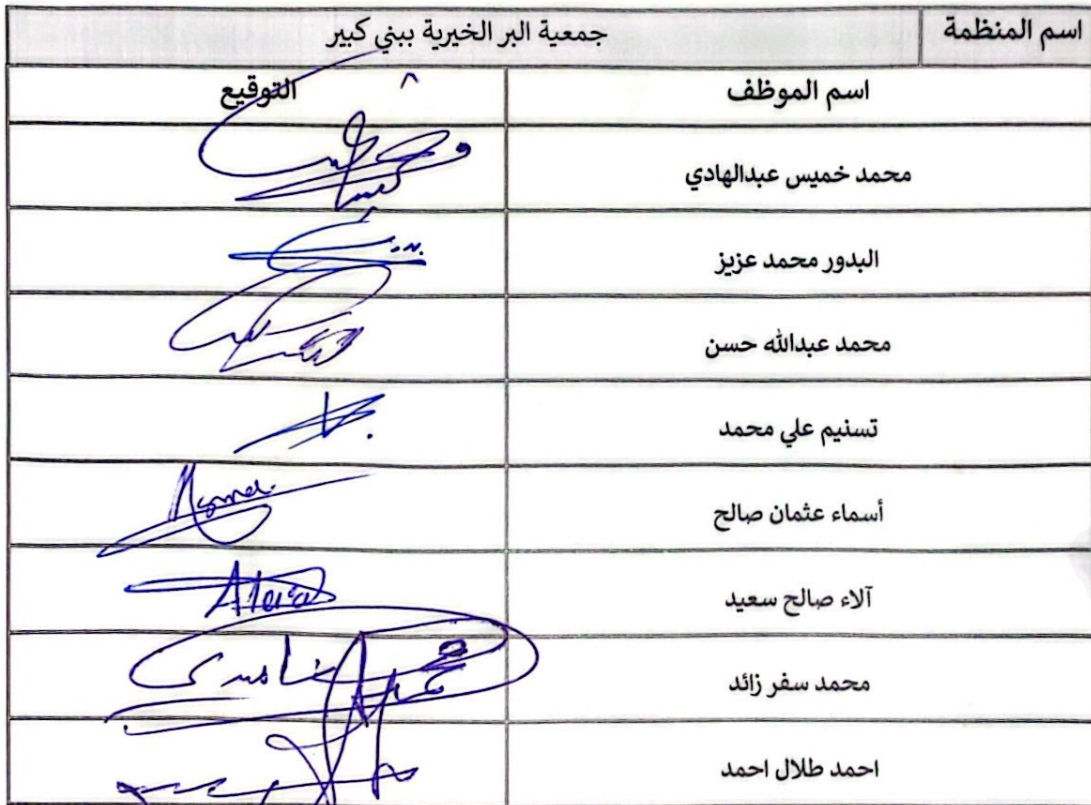 اسم المنظمة جمعية البر الخيرية ببني كبير
اسم الموظف التوقيع
محمد خميس عبدالهادي
البدور محمد عزيز
محمد عبدالله حسن
تسنيم علي محمد
أسماء عثمان صالح
آلاء صالح سعيد
محمد سفر زائد
احمد طلال احمد